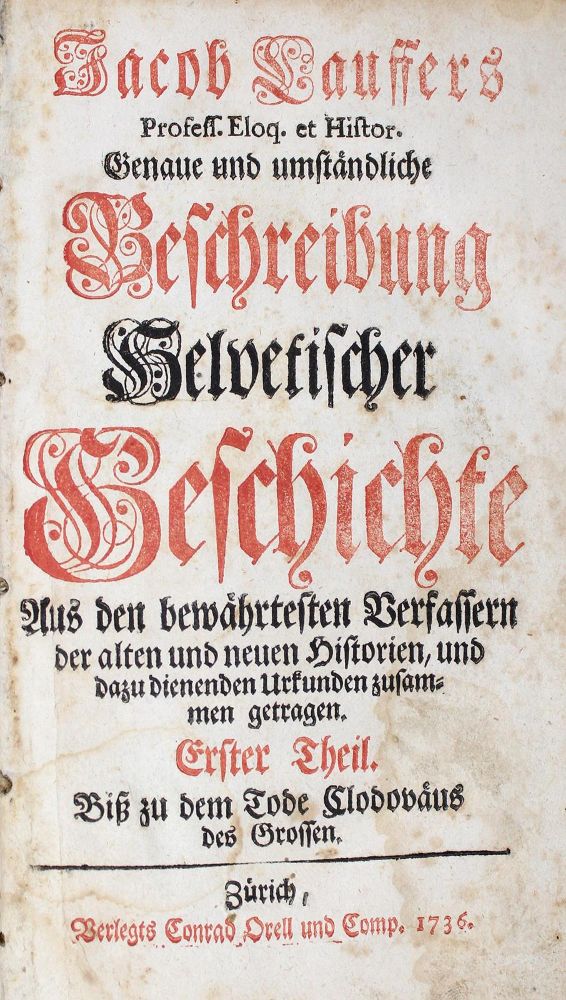 Jacob Lauffers
Profess. Eloq. et Histor.
Genaue und umständliche
Beschreibung
Helvetischer
Geschichte
Aus den bewährtesten Verfassern
der alten und neuen Historien, und
dazu dienenden Urkunden zusam-
men getragen.
Erster Theil.
Biß zu dem Tode Clodoväus
des Grossen.
Zürich,
Verlegts Conrad Orell und Comp. 1736.